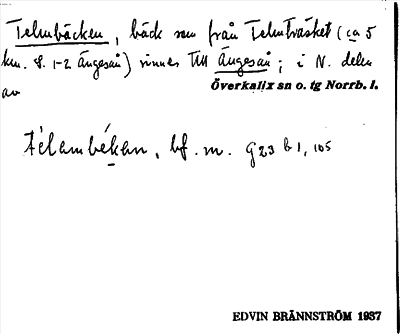 Telmbäcken, bäck som från Telmträsket (ca 5
km. S. 1-2 Ängesån) rinner till Ängesån; i N. delen
av Överkalix sn o. tg Norrb. l.
télambékan, bf. m. G23 b1, 105
EDVIN BRÄNNSTRÖM 1937